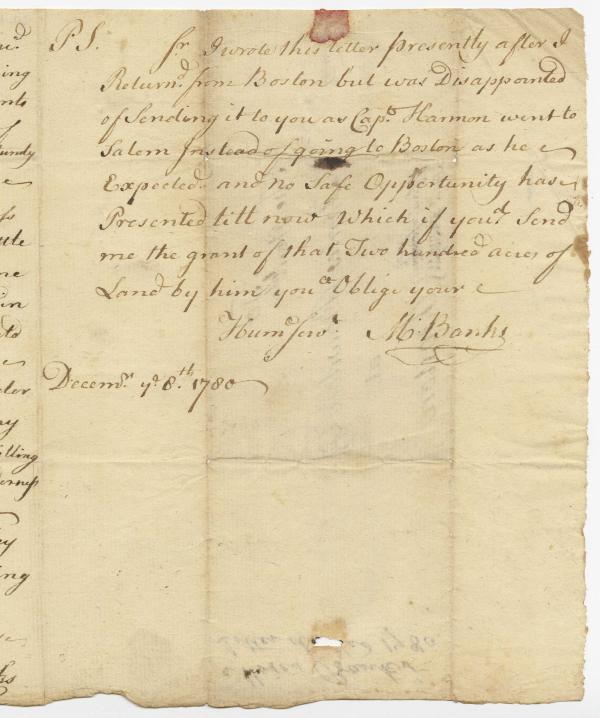 P S. Sr I wrote this letter presently after I
Returnd from Boston but was Disappointed
of Sending it to you as Capt Harmon went to
Salem Instead of going to Boston as he
Expected and no Safe Opportunity has
Presented till now Which if youd Send
me the grant of that Two hundred acres of
Land by him youd Oblige your
Humd Servt M. Banks
Decemr ye 8th 1780